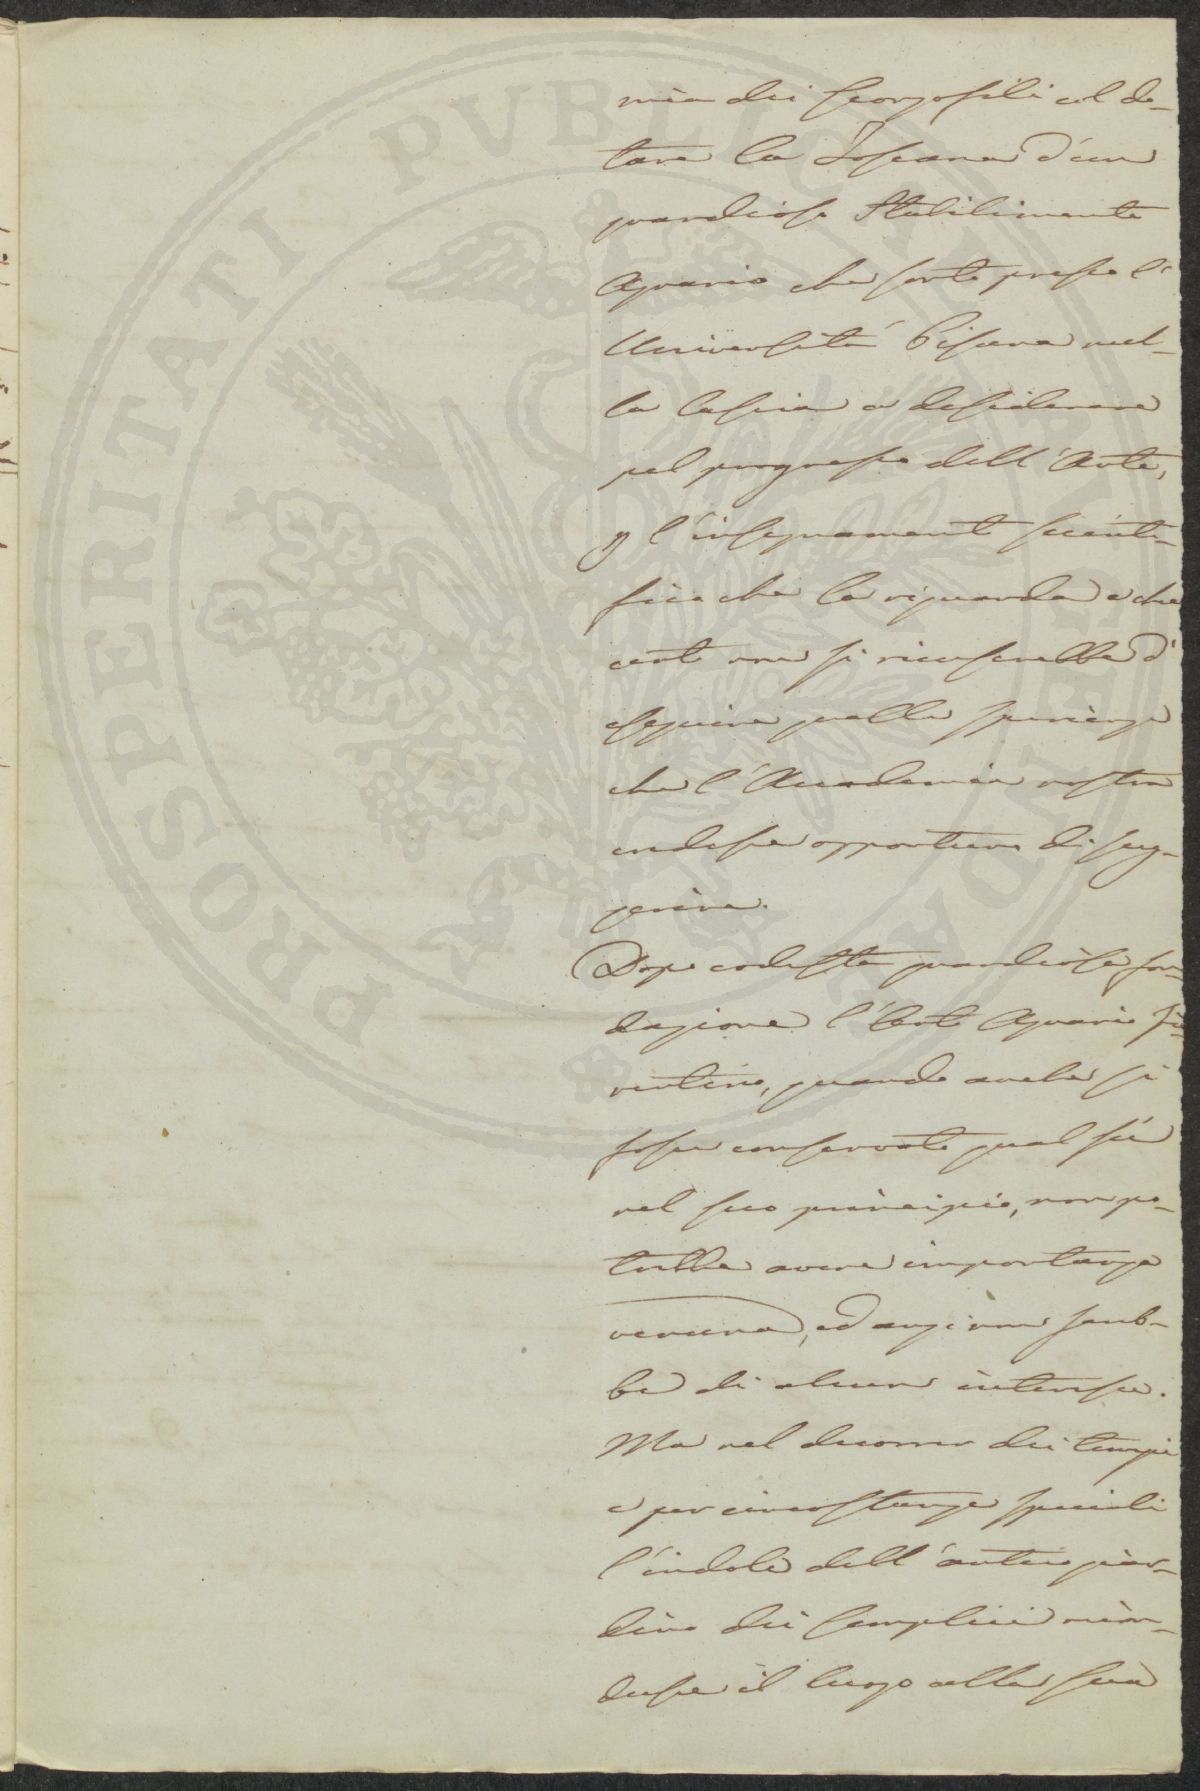 PROSPERITATI PVBLICAE AVGENDAE
mia dei Georgofili col do-
tare la Toscana d'un
grandioso Stabilimento
Agrario che sorto presso l'
Università Pisana nul-
la lascia a desiderare
pel progresso dell'Arte,
p l'insegnamento scienti-
fico che la riguarda e che
certo non si ricuserebbe d'
eseguire quelle sperienze
che l'Accademia nostra
credesse opportuno di sug-
gerire.
Dopo codesta grandiosa fon-
dazione l'Orto Agrario Fio-
rentino, quando anche si
fosse conservato qual fù
nel suo principio, non po-
trebbe avere importanza
veruna, ed anzi non sareb-
be di alcun interesse.
Ma nel decorrer dei tempi
e per circostanze speciali
l'indole dell'antico giar-
dino dei Semplici ricon-
dusse il luogo alla sua